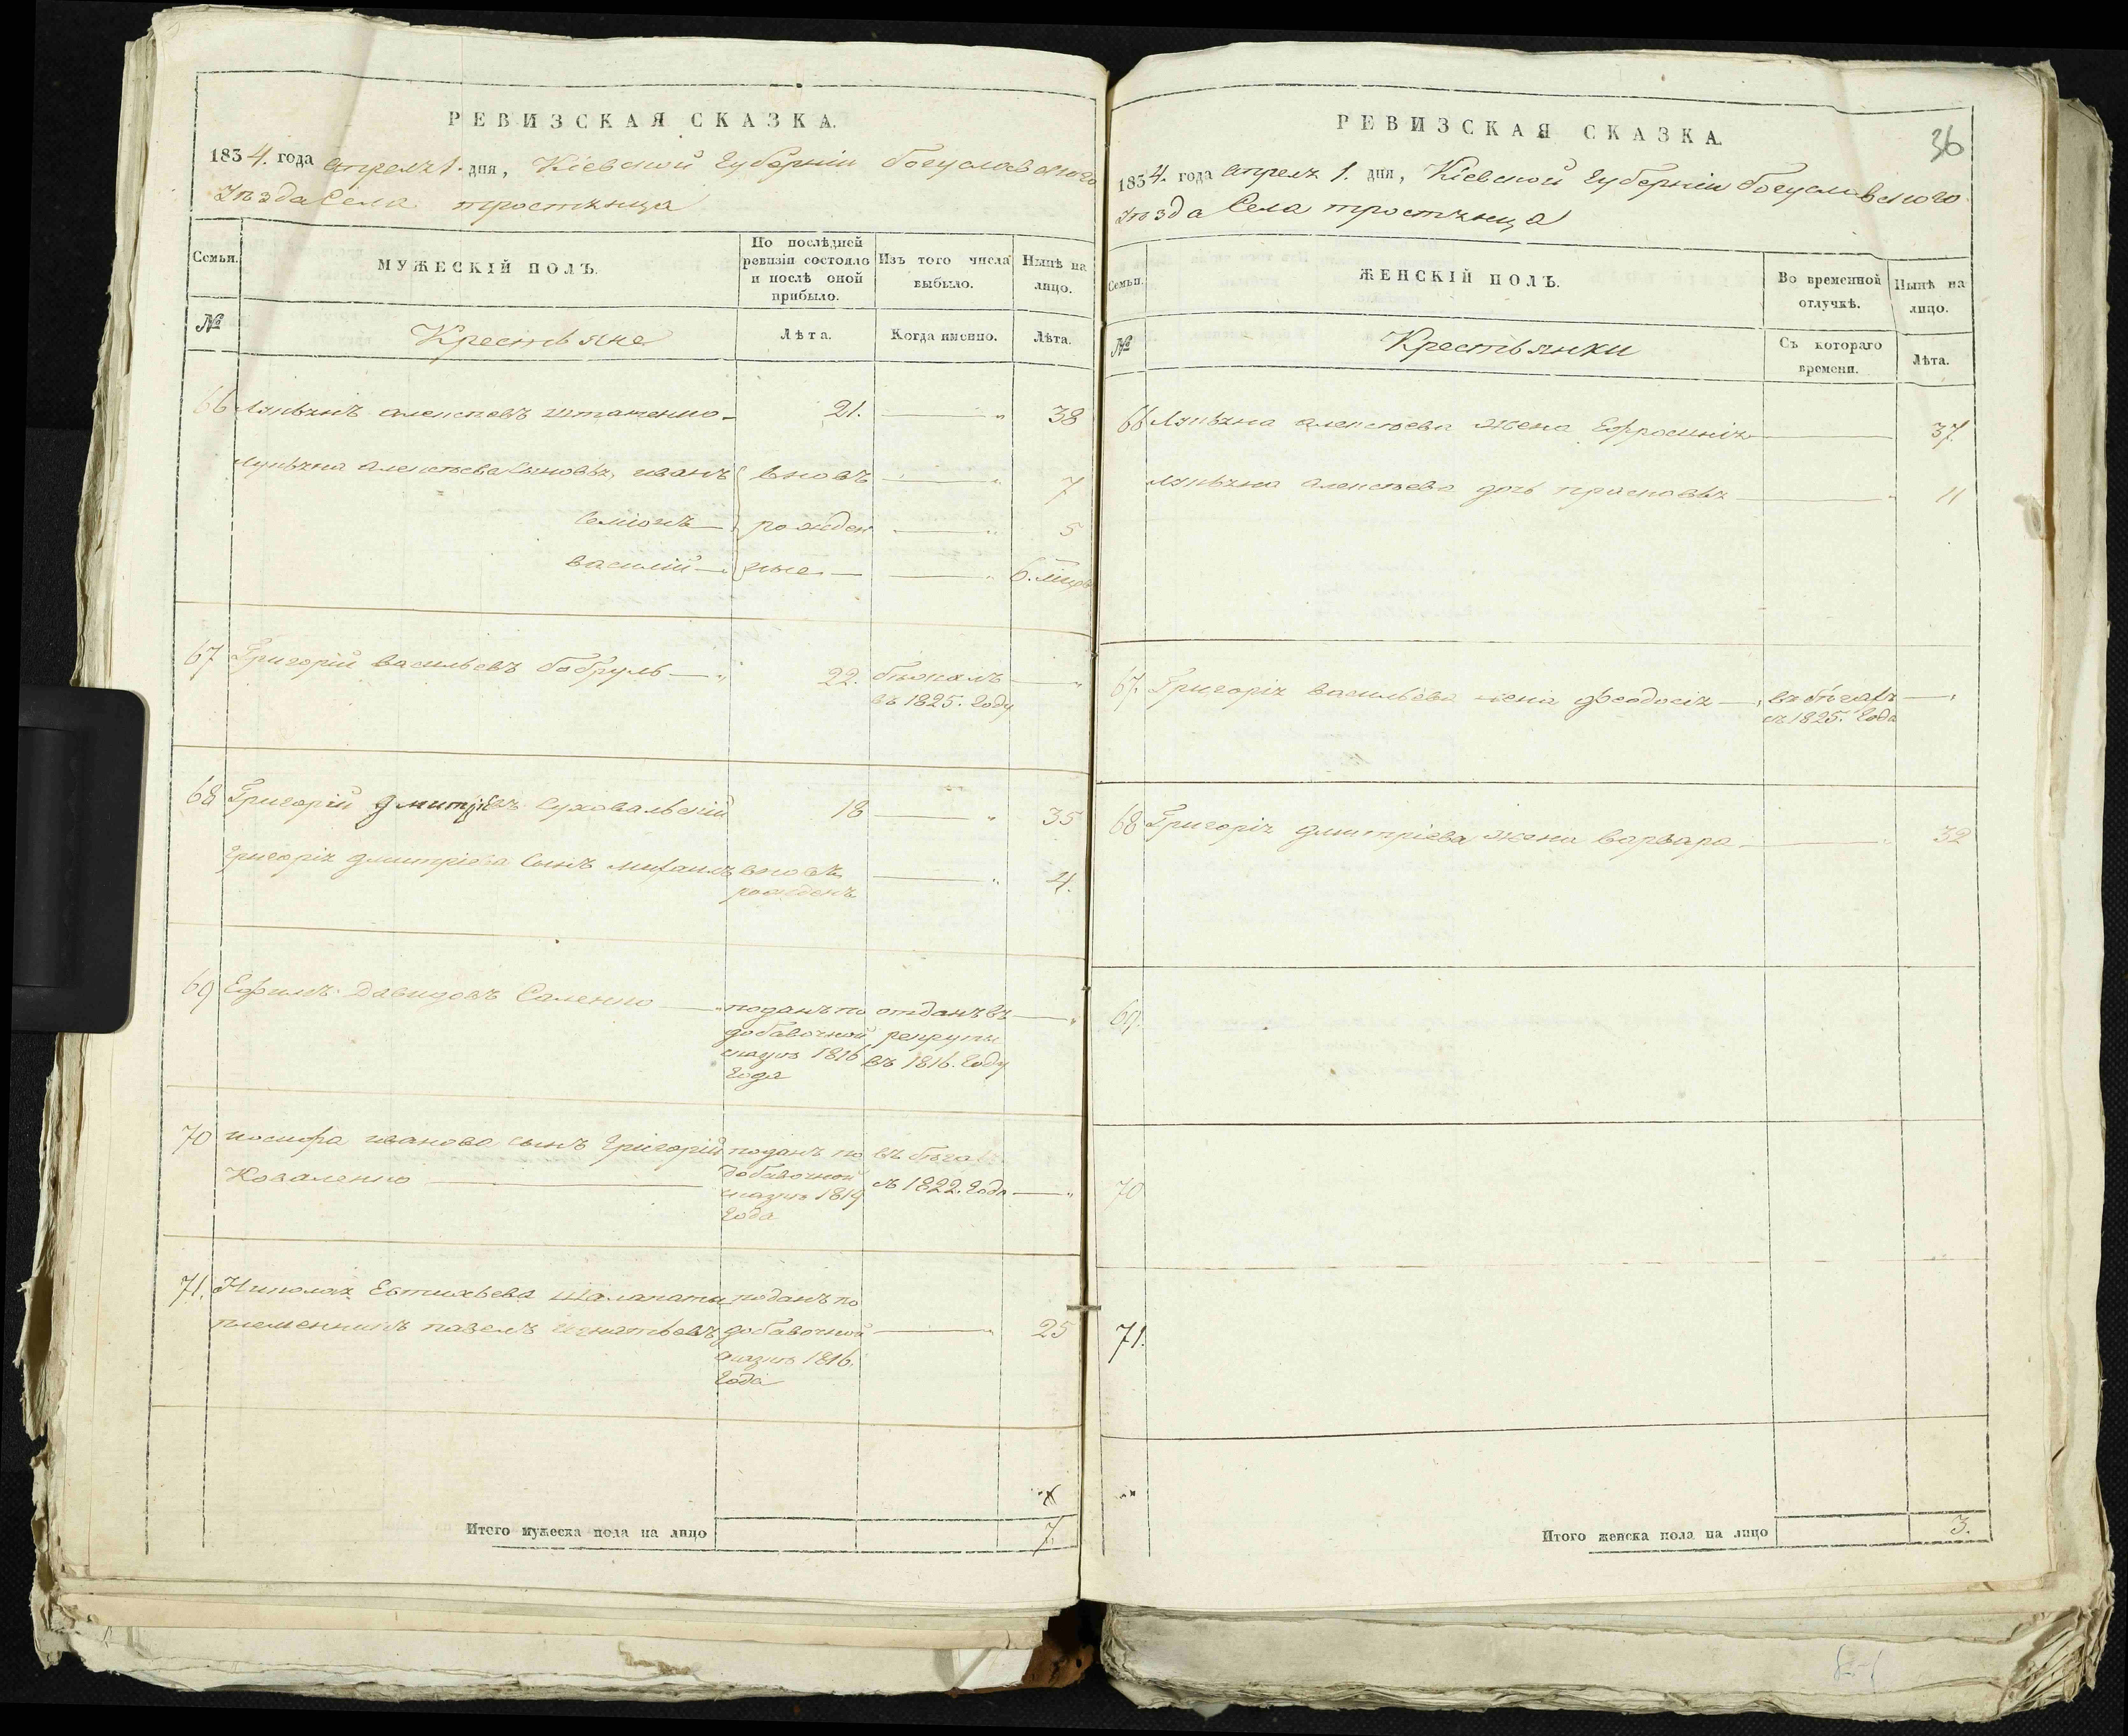 РЕВИЗСКАЯ СКАЗКА.
1834. года апреля 1. дня, Кіевской губерніи богуславского
Уѣзда Села тростянца
Семьи.
МУЖЕСКІЙ ПОЛЪ.
По послѣдней ревизіи состояло и послѣ оной прибыло.
Изъ того числа выбыло.
Нынѣ на лицо.
№
Крестьяне
Лѣта.
Когда именно.
Лѣта.
66 Лукьянъ алексѣевъ 21. 38
Лукьяна алексѣева Сыновья, иванъ вновь 7
Семіонъ рожден 5
василій ные 6.
67 Григорій васильевъ бобруль 22. бѣжалъ
въ 1825. Году
68 Григорій дмитріевъ Суховальскій 18 35
Григорія дмитріева Сынъ михаилъ вновь 4.
рожденъ
69 Ефимъ Давидовъ Саленко поданъ по отданъ въ
добавочной рекруты
сказкѣ 1816 въ 1816. Году
Года
70 иосифа иванова сынъ Григорій поданъ по въ бѣгахъ
Коваленко добавочной съ 1822. Года
сказкѣ 1819
Года
71. Николая Евтихьева шалапаты поданъ по
племенникъ павелъ игнатьевъ добавочной 25
сказкѣ 1816.
Года
Итого мужеска пола на лицо 7
РЕВИЗСКАЯ СКАЗКА.
36
1834. года апреля 1. дня, Кіевской губерніи богуславского
Уѣзда Села тростянца
Семьи.
ЖЕНСКІЙ ПОЛЪ.
Во временной отлучкѣ.
Нынѣ на лицо.
№
Крестьянки
Съ котораго времени.
Лѣта.
66 Лукьяна алексѣева жена Ефросинія 37.
Лукьяна алексѣева дочь прасковья 11
67. Григорія васильева жена феодосія въ бѣгахъ
съ 1825. Года
68 Григорія дмитріева жена варвара 32
69.
70
71.
Итого женска пола на лицо 3.